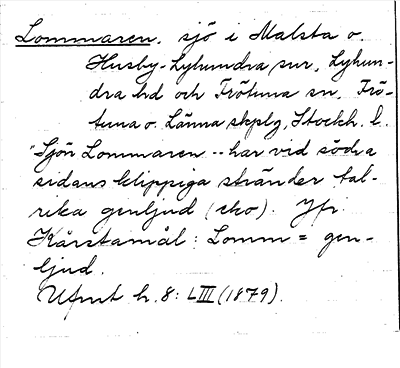 Lommaren, sjö i Malsta o.
Husby-Lyhundra snr, Lyhun-
dra hd och Frötuna sn, Frö-
tuna o. Länna skplg, Stockh. l.
"Sjön Lommaren -- har vid södra
sidans klippiga stränder tal-
rika genljud (eko). Jfr
Kårstamål: Lomm = gen-
ljud.
Ufmt h. 8: LIII (1879).